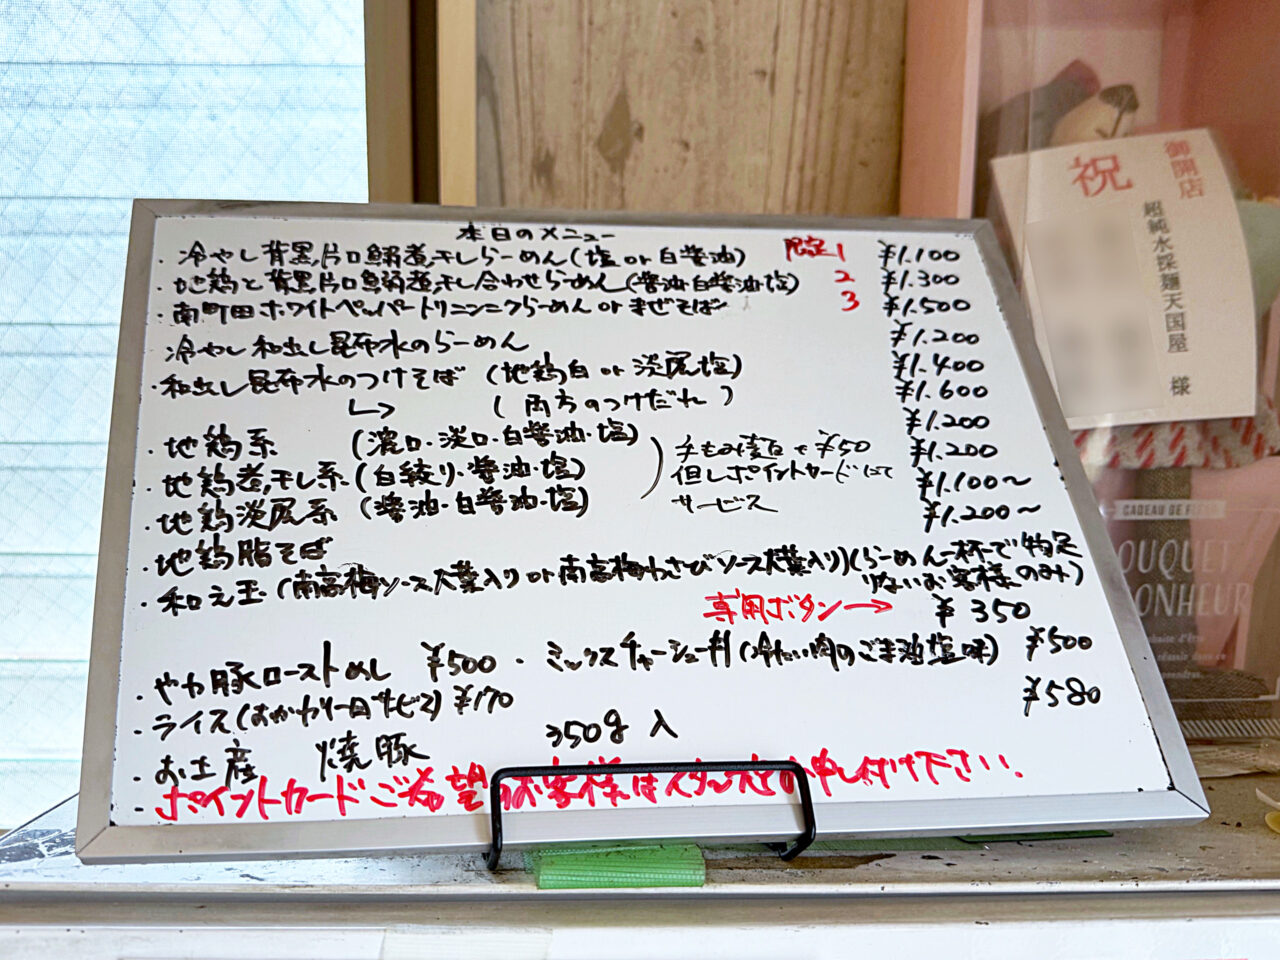 本日のメニュー
・冷やし背黒片口鰯煮干しらーめん(塩or白醤油) 限定1 ¥1.100
・地鶏と背黒片口鰯煮干し合わせらーめん(醤油・白醤油・塩) 2 ¥1.300
・南町田ホワイトペッパートリニンニクらーめんorまぜそば 3 ¥1.500
冷やし和出し昆布水のらーめん ¥1.200
・和出し昆布水のつけそば (地鶏白or淡尻塩) ¥1.400
↳ (両方のつけだれ) ¥1.600
・地鶏系 (濃口・淡口・白醤油・塩) ¥1.200
・地鶏煮干し系(白絞り・醤油・塩) ¥1.200
・地鶏淡尻系 (醤油・白醤油・塩) ¥1.100〜
手もみ麺+¥50
但しポイントカードにて
サービス
・地鶏脂そば ¥1.200〜
・和え玉(南高梅ソース大葉入りor南高梅わさびソース大葉入り)(らーめん一杯で物足
りないお客様のみ)
専用ボタン→ ¥350
・やわ豚ローストめし ¥500 ・ミックスチャーシュー丼(冷たい肉のごま油塩味) ¥500
・ライス(おかわり一回サービス) ¥170
・お土産 焼豚 350g入 ¥580
・ポイントカードご希望のお客様はスタッフまでお申し付け下さい.
祝
御開店
超純水採麺天国屋 様
CADEAU DE
OUQUET
ONHEUR